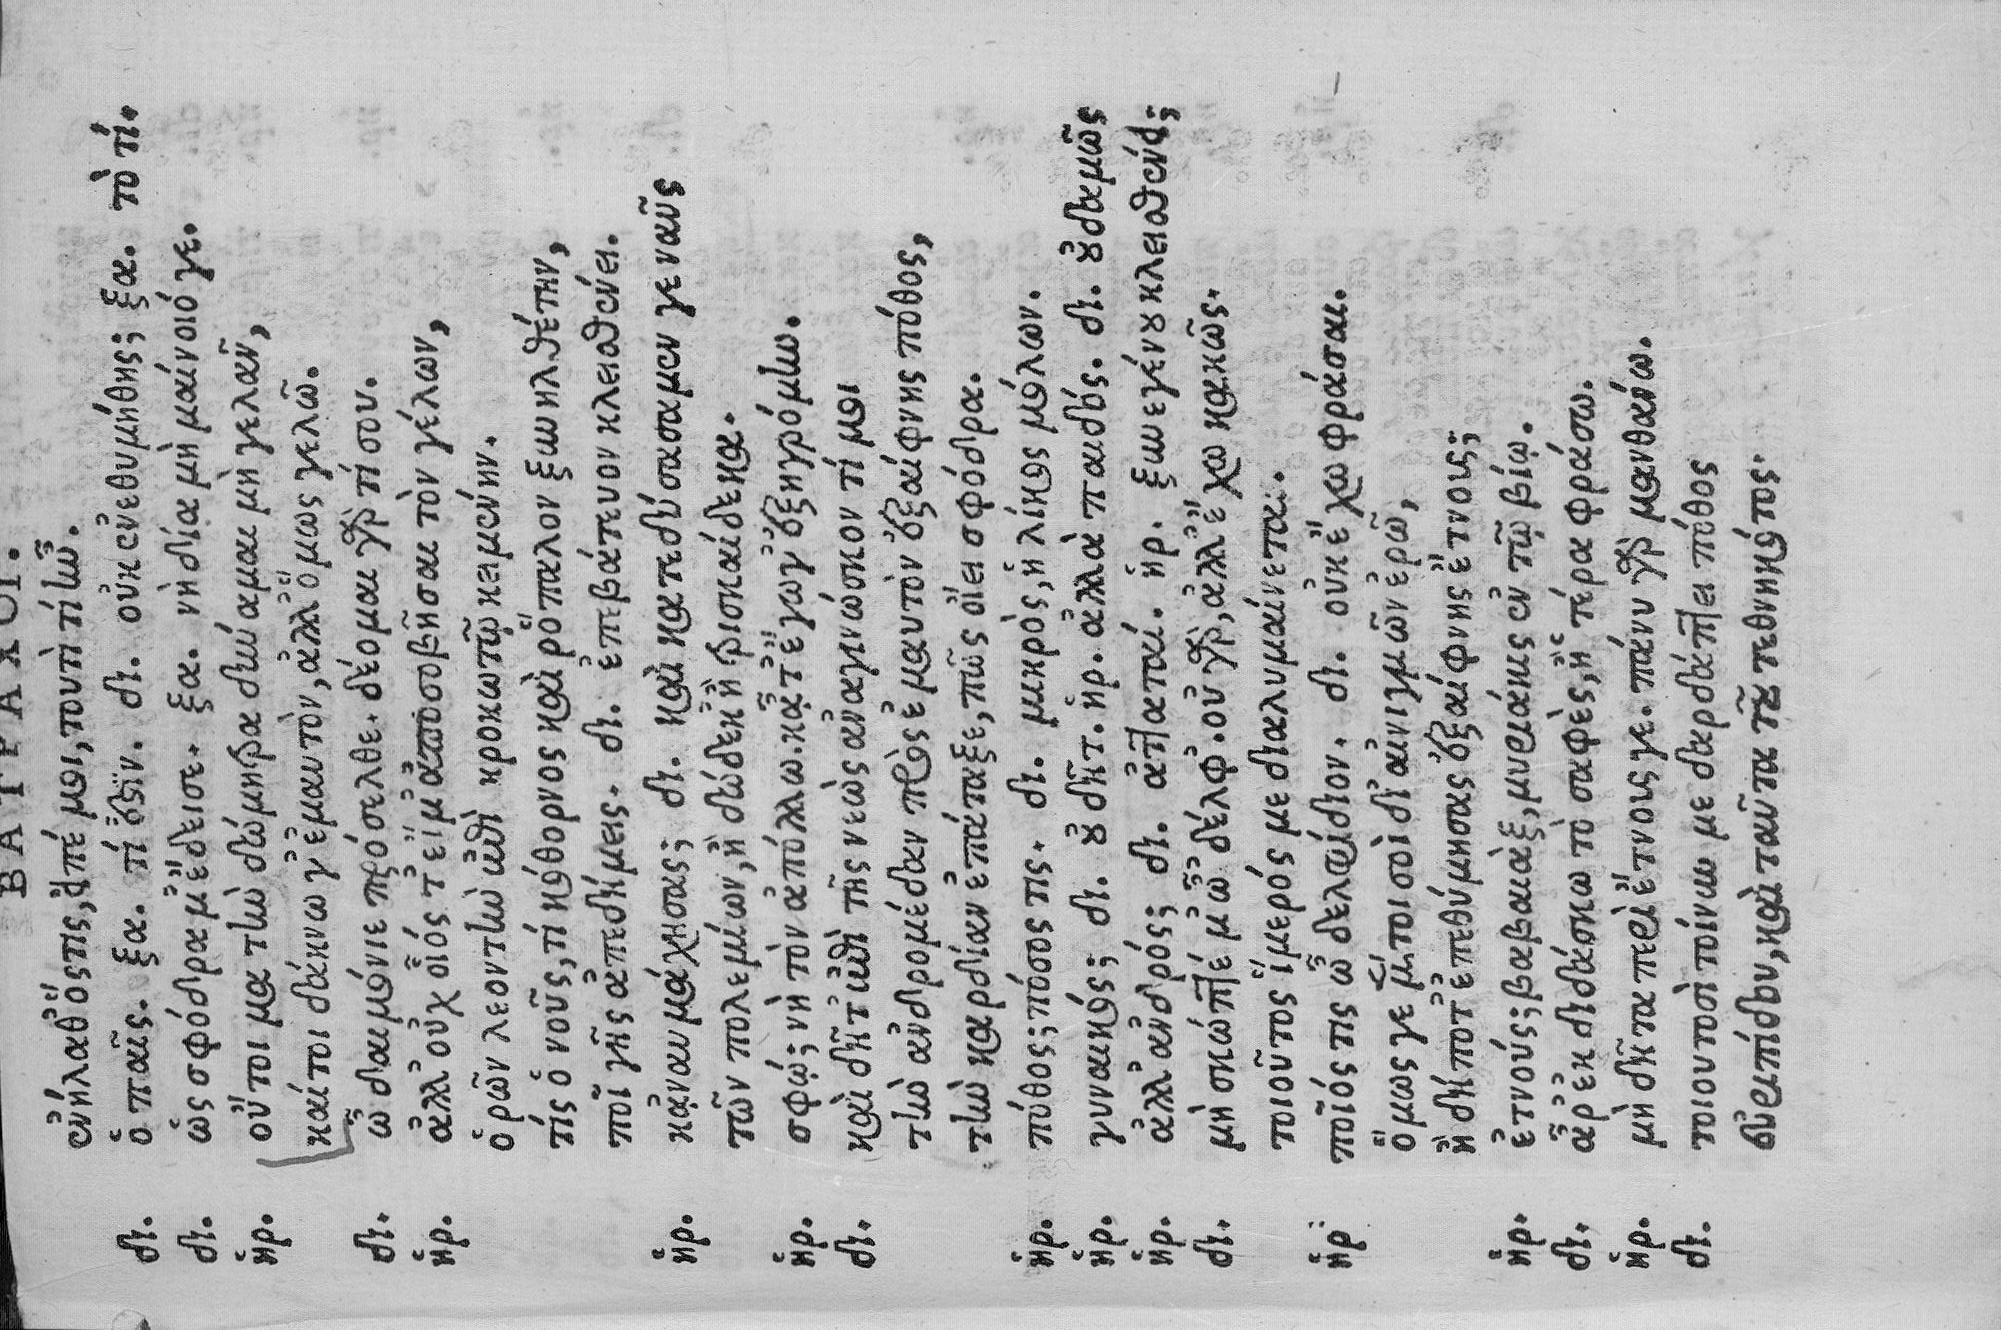 ΒΑΤΡΑΧΟΙ.
ἐνήλαθ᾽ ὅςτις, εἰπέ μοι, τουτὶ τί ἦν.
δι. ὁ παῖς. ξα. τί ἔστιν. δι. οὐκ ἐνεθυμήθης; ξα. τὸ τί.
δι. ὡς σφόδρα μ᾽ ἔδεισε. ξα. νὴ δία μὴ μαίνοιό γε.
ἡρ. οὔ τοι μα τὴν δώμητρα δύναμαι μὴ γελᾶν,
καίτοι δάκνω γ᾽ ἐμαυτὸν, ἀλλ᾽ ὅμως γελῶ.
δι. ὦ δαιμόνιε πρόσελθε. δέομαι γὰρ τί σου.
ἡρ. ἀλλ᾽ οὐχ οἷός τ᾽ εἴμ᾽ ἀποσοβῆσαι τὸν γέλων,
ὁρῶν λεοντὴν ἐπὶ κροκωτῷ κειμένην.
τίς ὁ νοῦς, τί κόθορνος καὶ ῥόπαλον ξυνηλθέτην,
ποῖ γῆς ἀπεδήμεις. δι. ἐπεβάτευον κλεισθένει.
ἡρ. κἀναυμάχησας; δι. καὶ κατεδύσαμεν γε ναῦς
τῶν πολεμίων, ἢ δώδεκ᾽ ἢ τρισκαίδεκα.
ἡρ. σφώ; νὴ τὸν ἀπόλλω. κᾆτ᾽ ἔγωγ᾽ ἐξηγρόμην.
δι. καὶ δῆτ᾽ ἐπὶ τῆς νεὼς ἀναγινώσκοντί μοι
τὴν ἀνδρομέδαν πρὸς ἐμαυτὸν ἐξαίφνης πόθος,
τὴν καρδίαν ἐπάταξε, πῶς οἴει σφόδρα.
ἡρ. πόθος; πόσος τις. δι. μικρὸς, ἡλίκος μόλων.
ἡρ. γυναικός; δι. οὐ δῆτ. ἡρ. ἀλλὰ παιδός. δι. οὐδαμῶς
ἡρ. ἀλλ᾽ ἀνδρός; δι. ἀπαταί. ἡρ. ξυνεγένου κλεισθένει;
δι. μὴ σκῶπτέ μ᾽ ὦ δέλφ᾽. οὐ γὰρ, ἀλλ᾽ ἔχω κακῶς.
τοιοῦτος ἵμερός με διαλυμαίνεται.
ἡρ ποῖός τις ὦ δελφίδιον. δι. οὐκ ἔχω φράσαι.
ὅμως γε μέντοι σοὶ δι᾽ αἰνιγμῶν ἐρῶ,
ἤδη ποτ᾽ ἐπεθύμησας ἐξαίφνης ἔτνους;
ἡρ. ἐτνούς; βαβαιὰξ, μυριάκις ἐν τῷ βίῳ.
δι. ἆρ᾽ ἐκδιδάσκω τὸ σαφὲς, ἢ τέρα φράσω.
ἡρ. μὴ δῆτα περὶ ἔτνους γε. πάνυ γὰρ μανθάνω.
δι. τοιουτοσὶ τοίνυν με δαρδάπτει πόθος
εὐριπίδου, καὶ ταῦτα τοῦ τεθνηκότος.